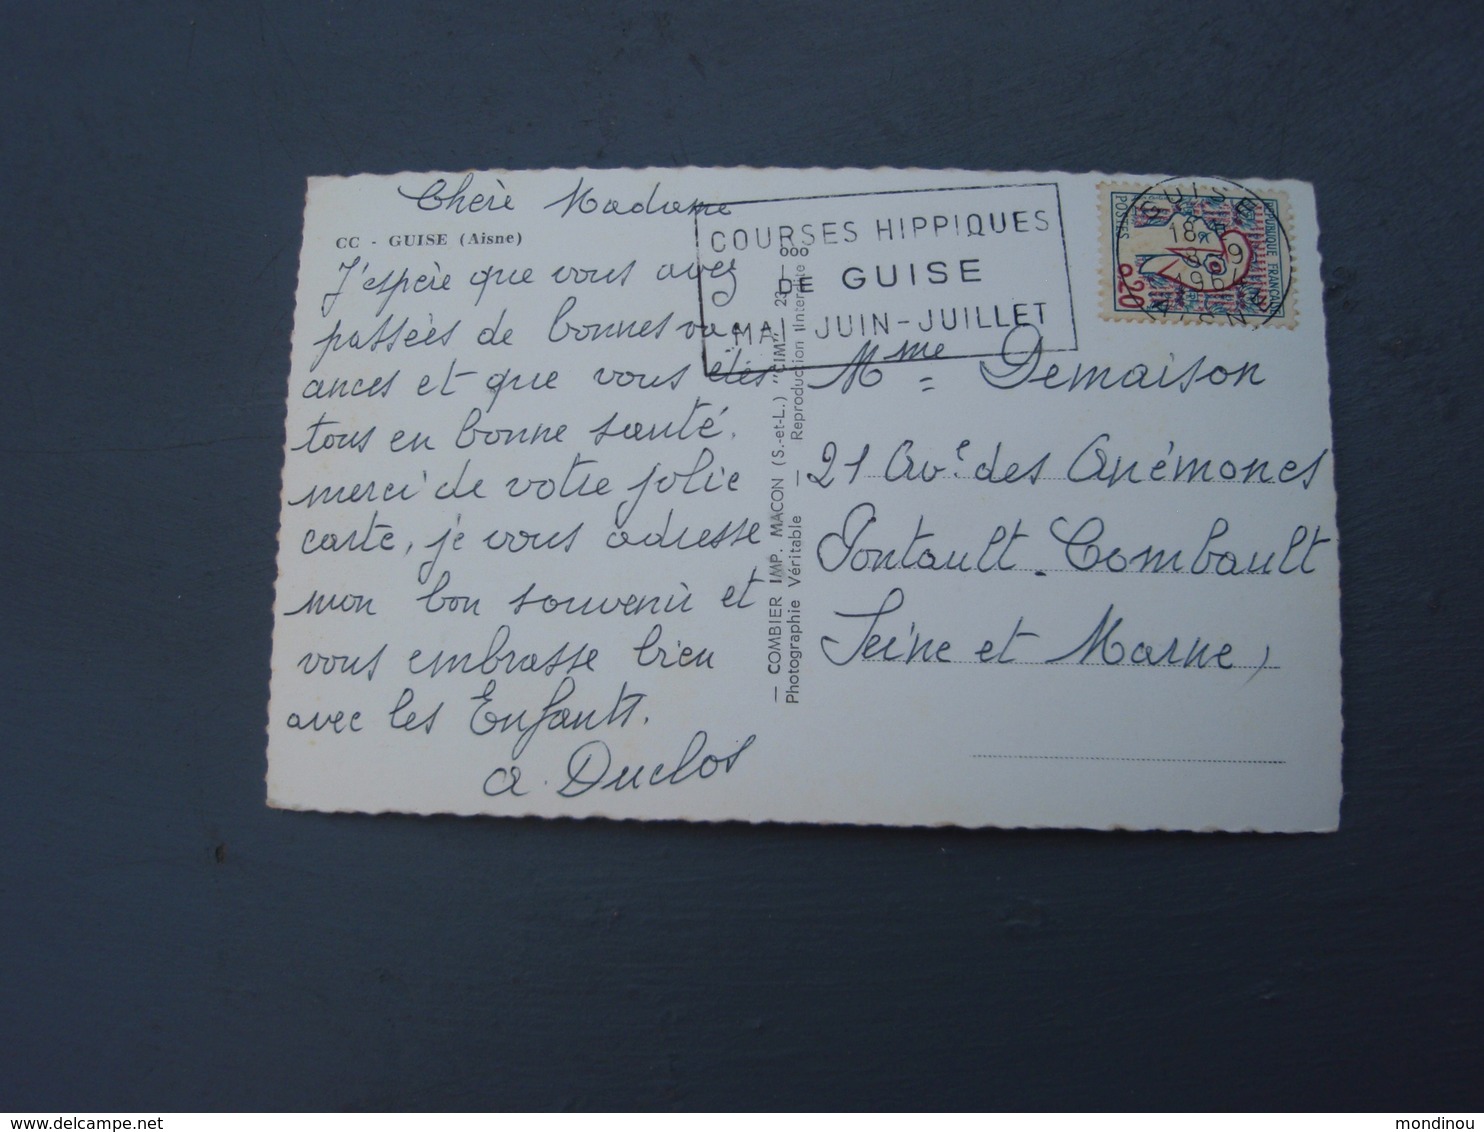 Chère Madame
CC - GUISE (Aisne)
J'espère que vous avez
passées de bonnes vac
ances et que vous êtes
tous en bonne santé.
merci de votre jolie
carte, je vous adresse
mon bon souvenir et
vous embrasse bien
avec les Enfants.
A. Duclos
COURSES HIPPIQUES
DE GUISE
MAI-JUIN-JUILLET
— COMBIER IMP. MACON (S.-et-L.) "CIM"
Photographie Véritable — Reproduction Interdite
GUISE
18 H
AISNE
REPUBLIQUE FRANCAISE
POSTES
0,20
Mme = Demaison
21 Ave des Anémones
Pontault-Combault
Seine et Marne,
delcampe.net
mondinou